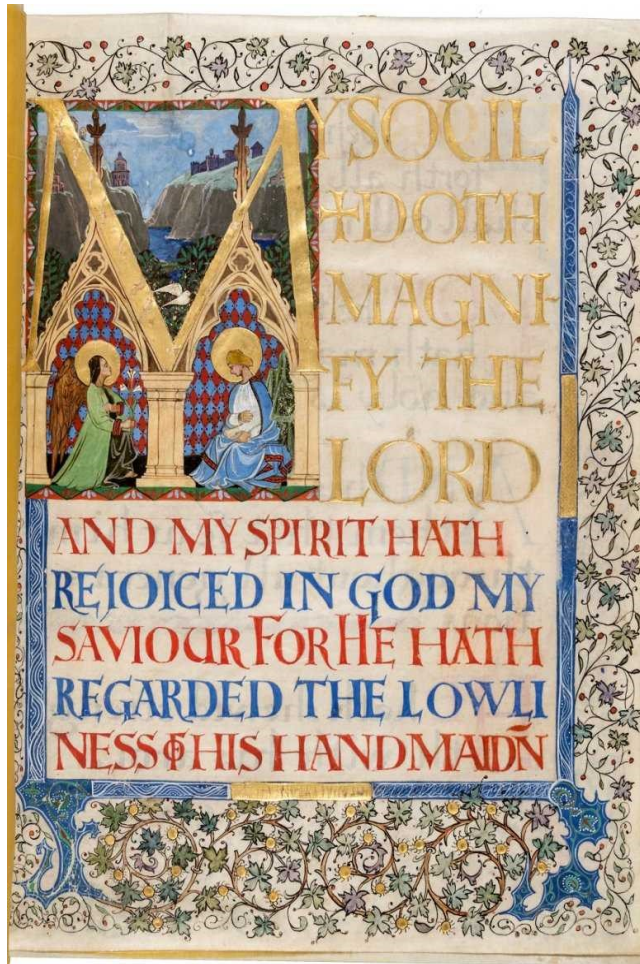 MY SOUL
+DOTH
MAGNI-
FY THE
LORD
AND MY SPIRIT HATH
REJOICED IN GOD MY
SAVIOUR FOR HE HATH
REGARDED THE LOWLI
NESS OF HIS HANDMAIDÑ